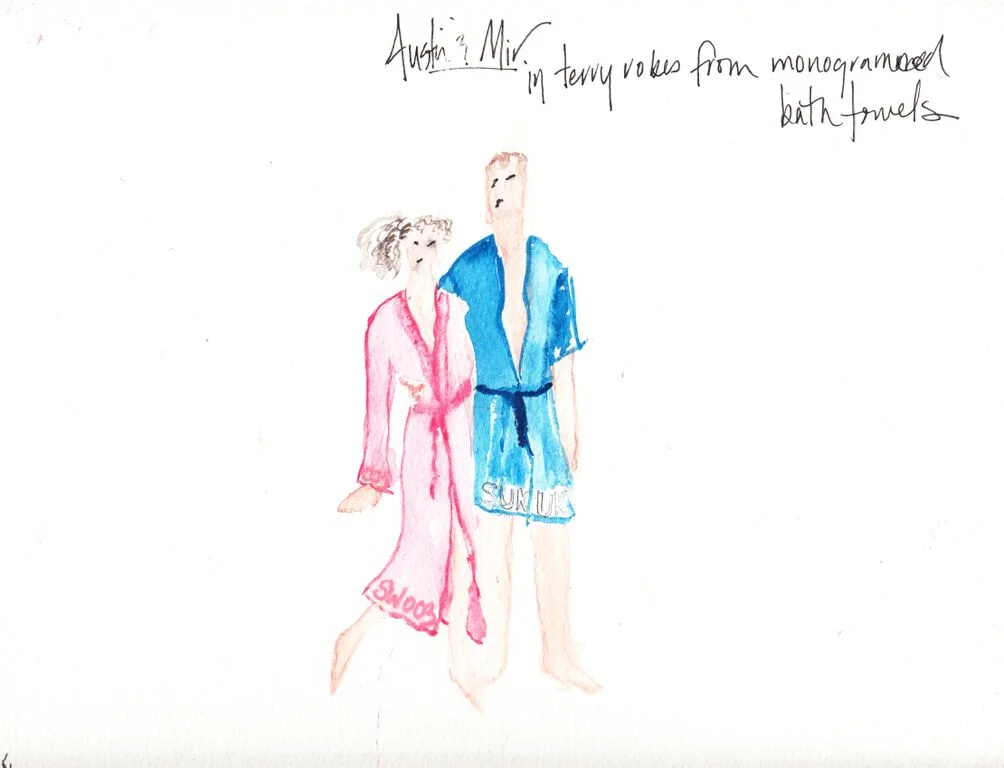 Austin & Mir.
in terry robes from monogrammed
bath towels
SUKUK
SWOOZ